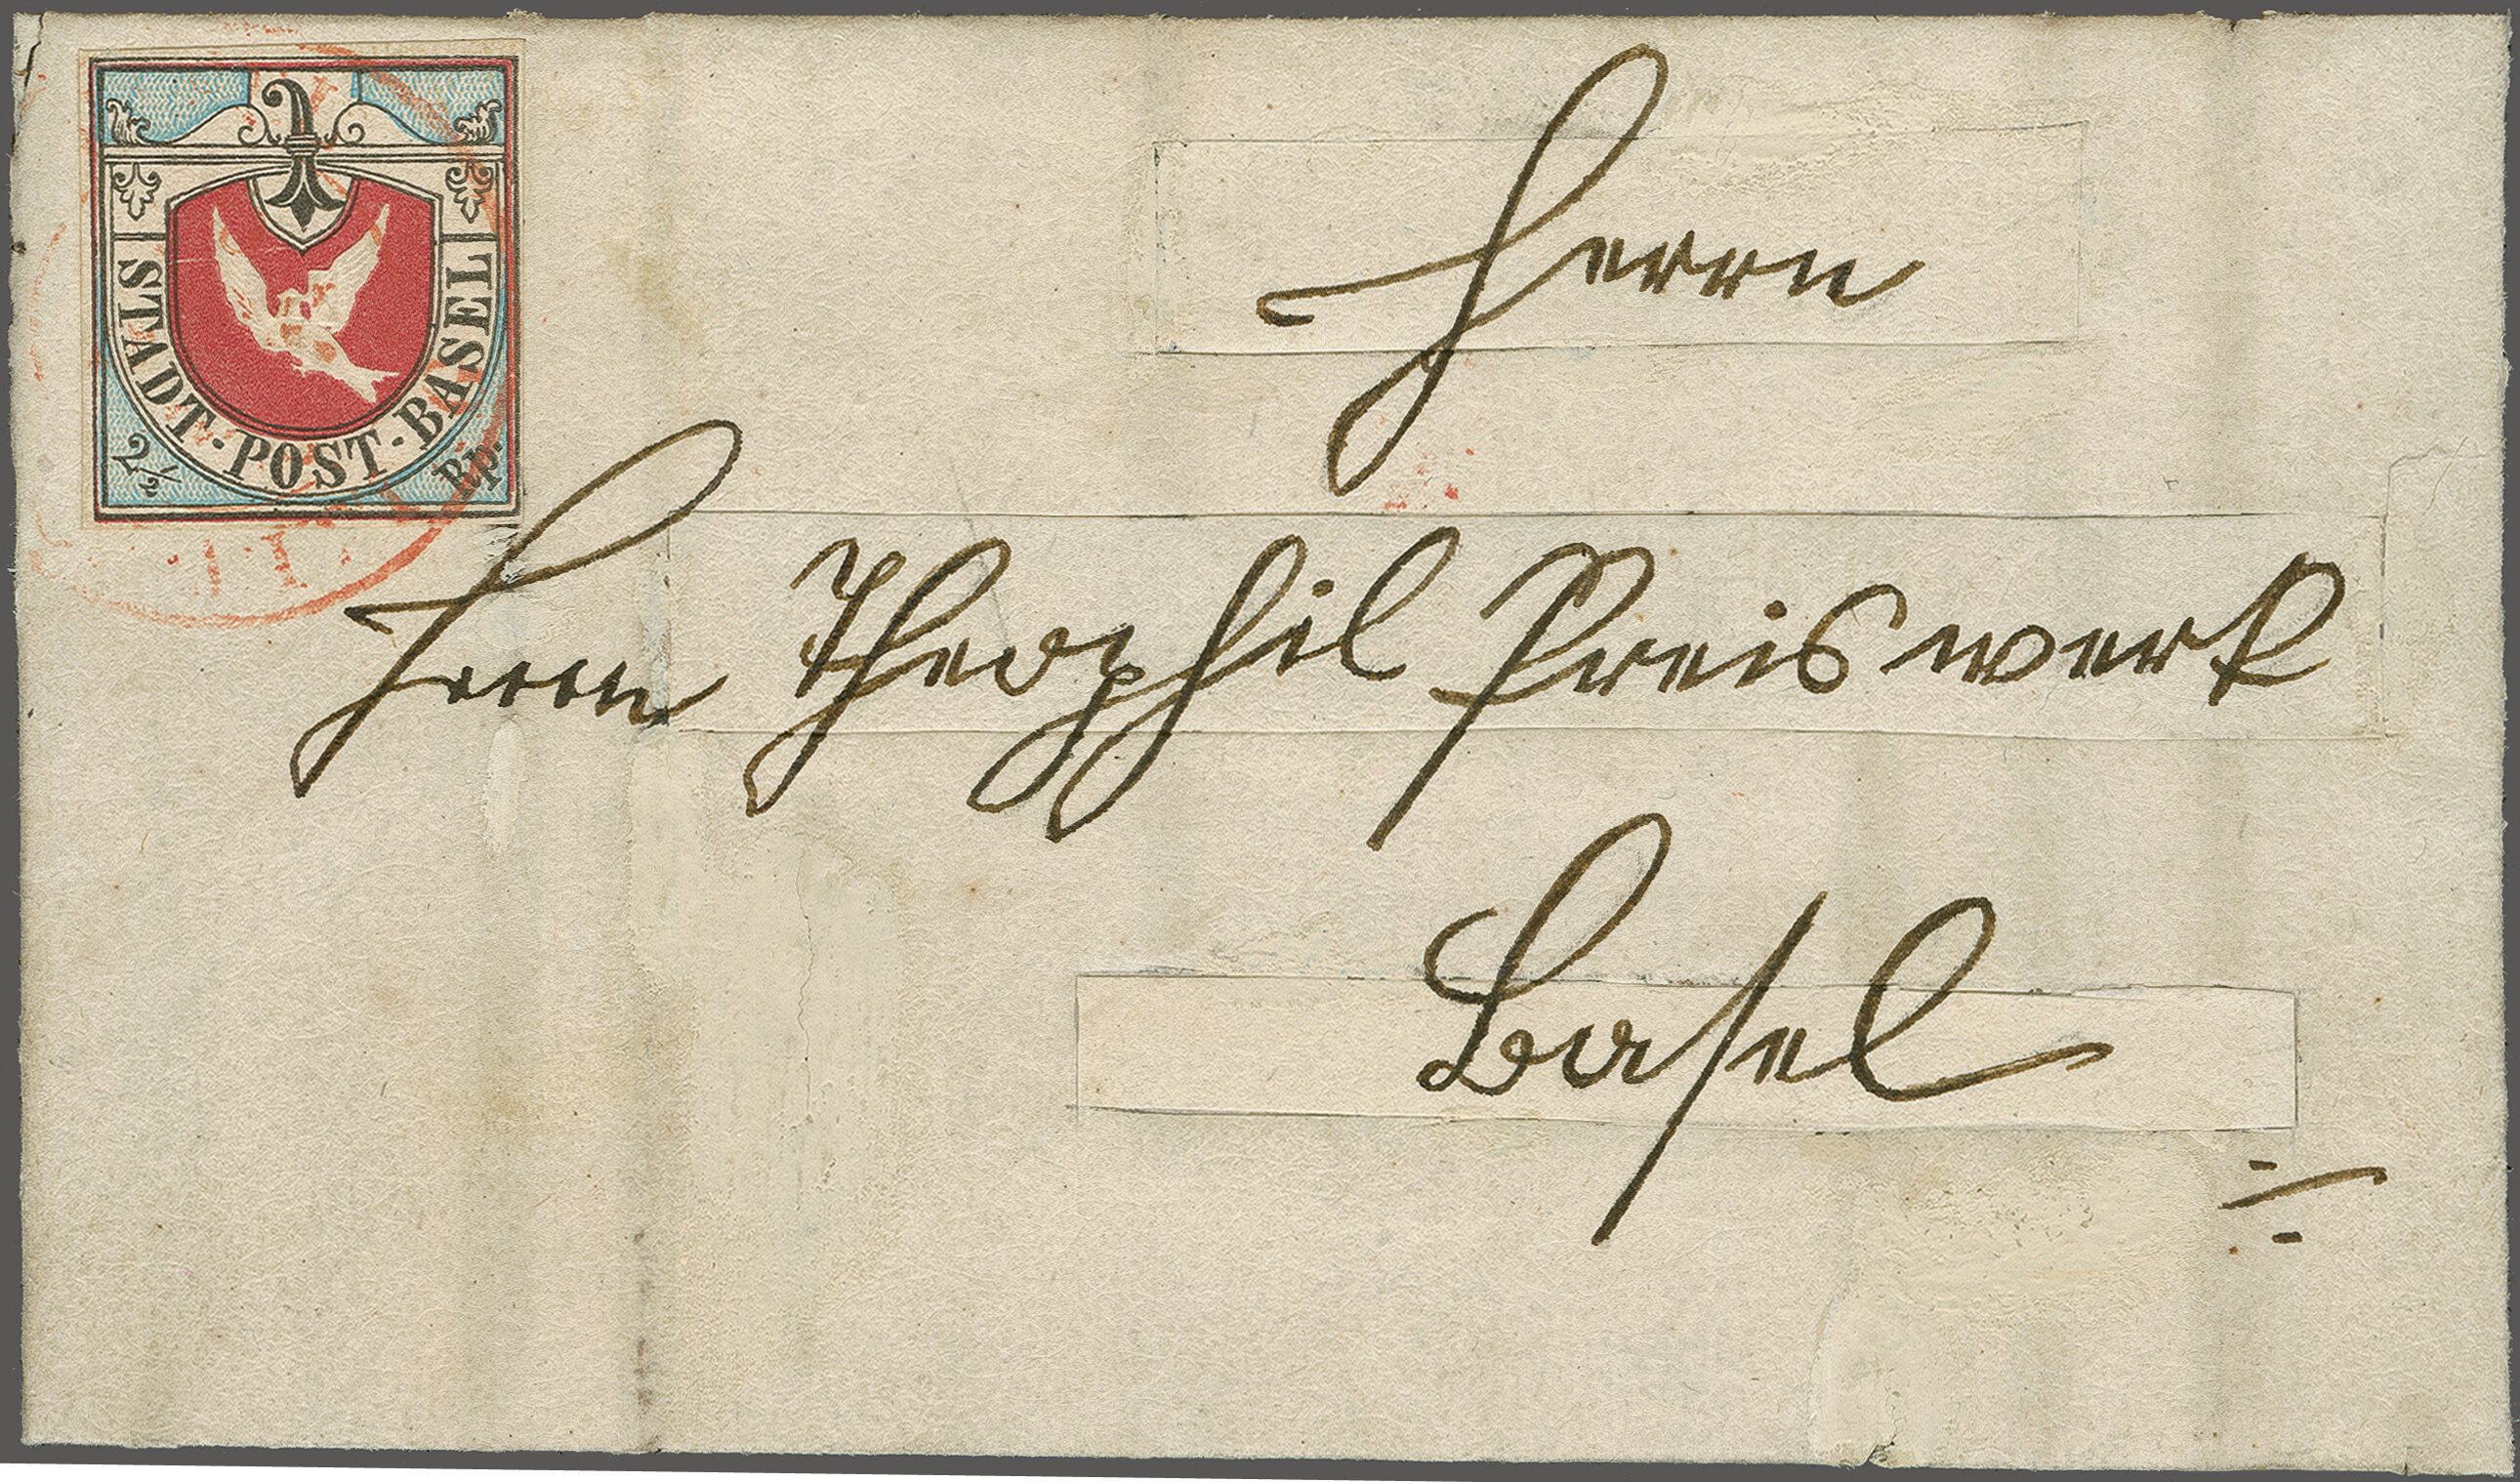 STADT-POST-BASEL
2½ Rp.
Herrn
Herrn Theophil Preiswerk
Basel